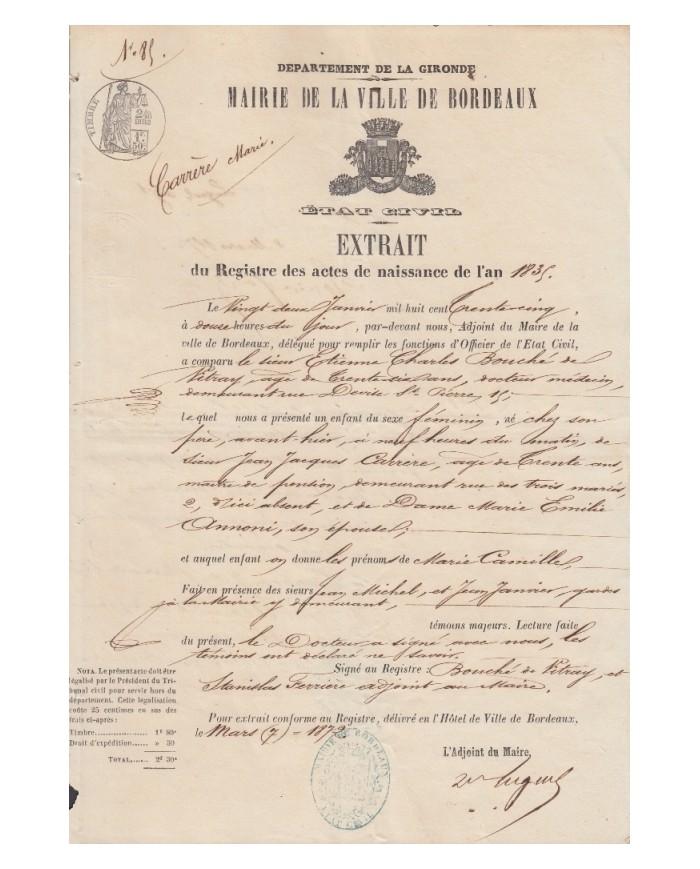 N° 85.
DEPARTEMENT DE LA GIRONDE
MAIRIE DE LA VILLE DE BORDEAUX
TIMBRE
Carrère Marie.
ÉTAT CIVIL
EXTRAIT
du Registre des actes de naissance de l'an 1835.
Le Vingt deux Janvier mil huit cent Trente-cinq,
à douse heures du jour, par-devant nous, Adjoint du Maire de la
ville de Bordeaux, délégué pour remplir les fonctions d'Officier de l'Etat Civil,
a comparu le sieur Etienne Charles Bouché de
Vitray, age de Trente-six ans, docteur médecin,
demeurant rue Devise St Pierre, 15;
lequel nous a présenté un enfant du sexe féminin, né chez son
père, avant-hier, à neuf heures du matin, de
sieur Jean Jacques Carrère, age de Trente ans,
maître de pension, demeurant rue des trois maries,
2, d'ici absent, et de Dame Marie Emilie
Annoni, son épouse;
et auquel enfant on donne les prénoms de Marie Camille,
Fait en présence des sieurs Jean Michel, et Jean Janvier, gardes
à la Mairie y demeurant,
témoins majeurs. Lecture faite
du présent, le Docteur a signé avec nous, les
témoins ont déclaré ne savoir.
Signé au Registre: Bouché de Vitray, et
Stanislas Ferrière adjoint au Maire.
NOTA. Le présent acte doit être
légalisé par le Président du Tri-
bunal civil pour servir hors du
département. Cette légalisation
coûte 25 centimes en sus des
frais ci-après:
Timbre........ 1f 80c
Droit d'expédition.. » 50
TOTAL..... 2f 30c
Pour extrait conforme au Registre, délivré en l'Hôtel de Ville de Bordeaux,
le Mars (7) - 1872
L'Adjoint du Maire,
MAIRIE DE BORDEAUX
ETAT CIVIL